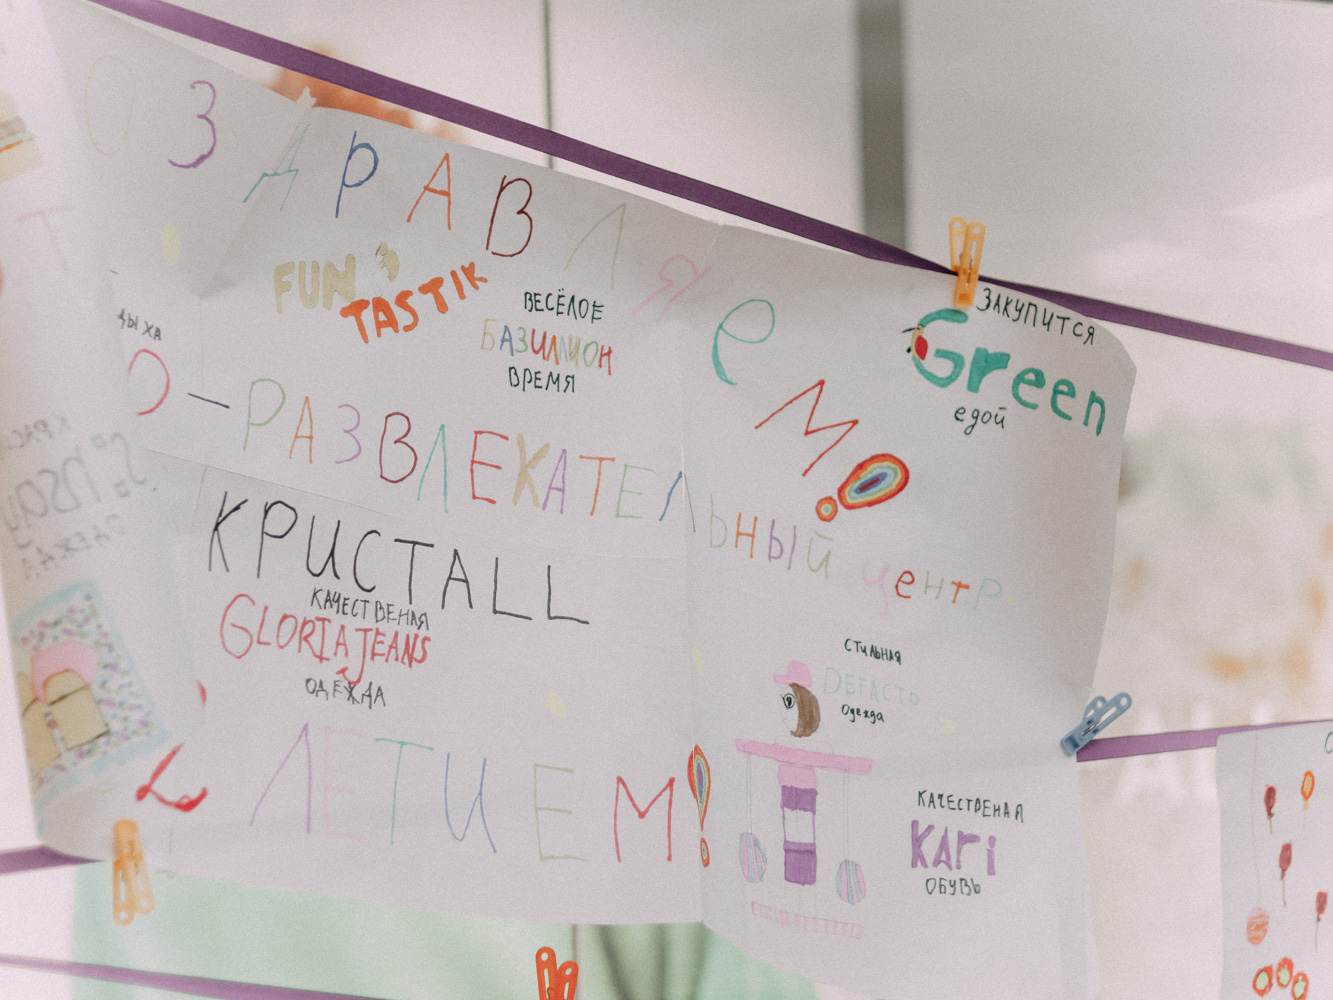 ОЗДРАВЛЯЕМ!
FUN TASTIK
ВЕСЁЛОЕ
БАЗИЛЛИОН
ВРЕМЯ
ЗАКУПИТСЯ
Green
едой
ДЫХА
О-РАЗВЛЕКАТЕЛЬНЫЙ центр
КРИСТALL
КАЧЕСТВЕНАЯ
GLORIA JEANS
ОДЕЖДА
СТИЛЬНАЯ
DEFACTO
Одежда
С ЛЕТИЕМ!
КАЧЕСТВЕНАЯ
KARI
ОБУВЬ